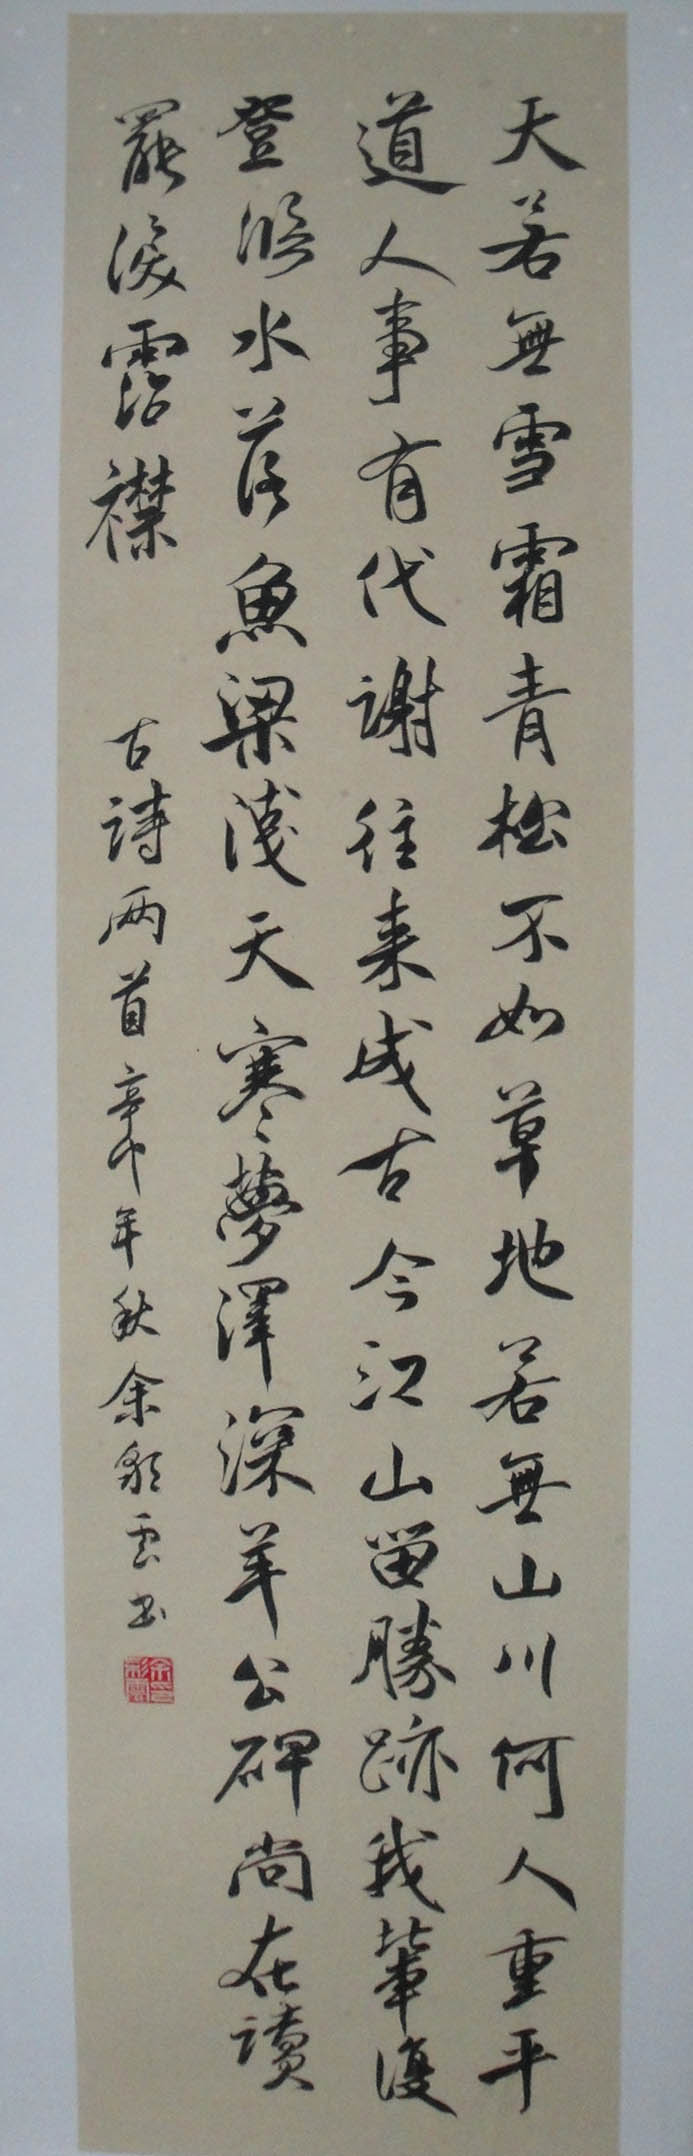 天若無雪霜青松不如草地若無山川何人重平
道人事有代謝往来成古今江山留勝跡我輩復
登臨水落魚梁淺天寒夢澤深羊公碑尚在讀
罷淚霑襟
古詩两首辛卯年秋余彩雲书